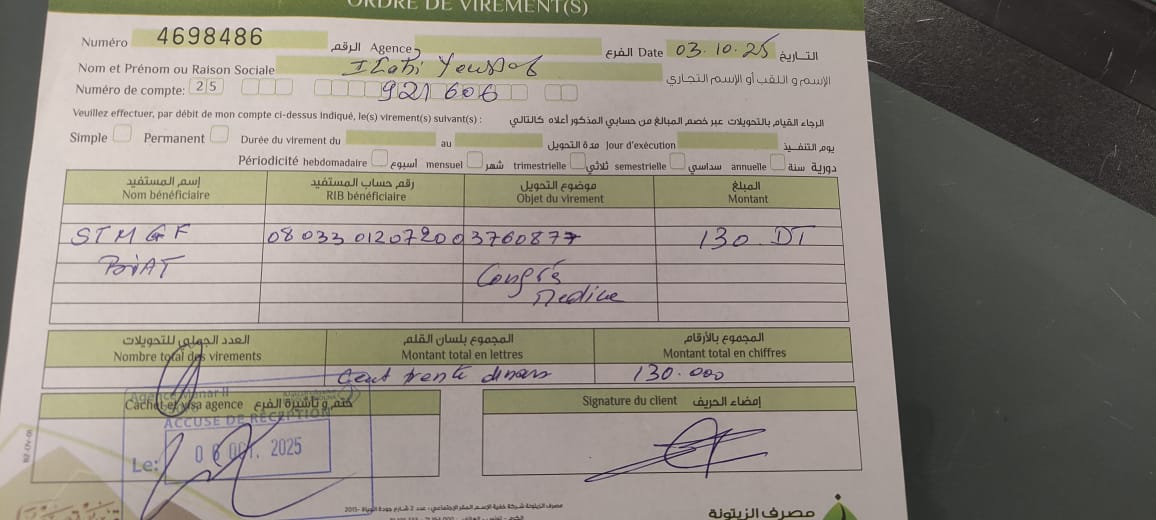 ORDRE DE VIREMENT(S)
Numéro 4698486 الرقم Agence الفرع Date 03.10.25 التاريخ
Nom et Prénom ou Raison Sociale الإسم و اللقب أو الإسم التجاري
Numéro de compte: 25 921606
Veuillez effectuer, par débit de mon compte ci-dessus indiqué, le(s) virement(s) suivant(s) : الرجاء القيام بالتحويلات عبر خصم المبالغ من حسابي المذكور أعلاه كالتالي
Simple Permanent Durée du virement du au مدة التحويل Jour d'exécution يوم التنفيذ
Périodicité hebdomadaire أسبوع mensuel شهر trimestrielle ثلاثي semestrielle سداسي annuelle سنة دورية
إسم المستفيد رقم حساب المستفيد موضوع التحويل المبلغ
Nom bénéficiaire RIB bénéficiaire Objet du virement Montant
STMGF 08033012072003760877 130 DT
BIAT Congrès
Medine
العدد الجملي للتحويلات المجموع بلسان القلم المجموع بالأرقام
Nombre total des virements Montant total en lettres Montant total en chiffres
Cent trente dinars 130.000
Cachet et visa agence ختم و تأشيرة الفرع Signature du client إمضاء الحريف
ACCUSE DE RECEPTION
Le: 06 OCT. 2025
مصرف الزيتونة